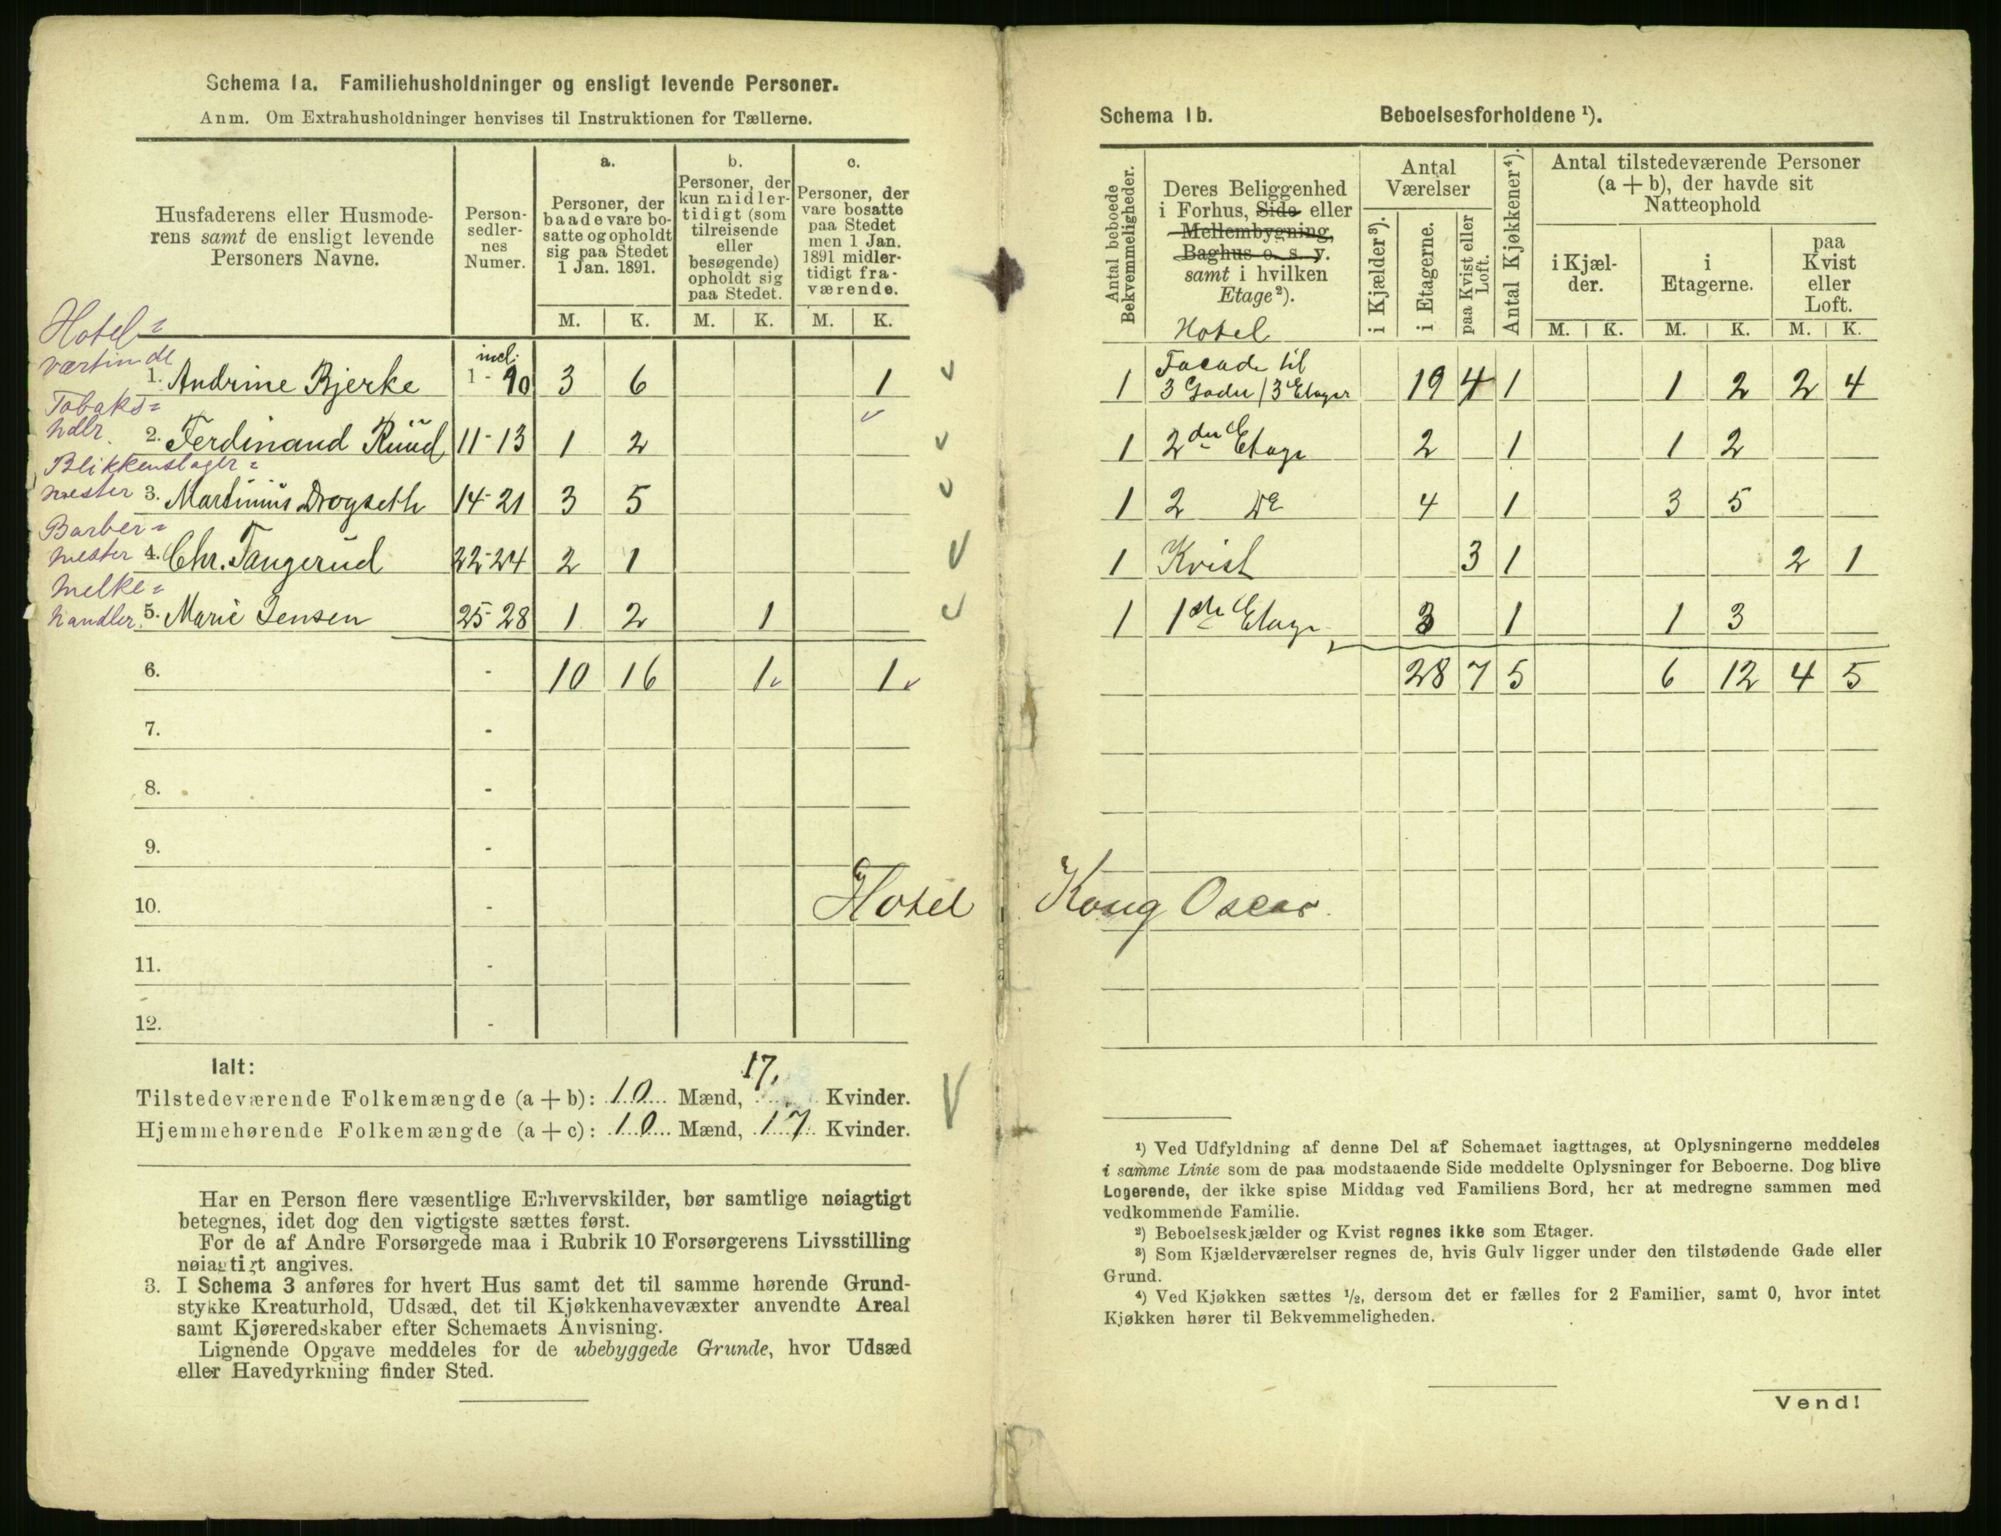 Schema 1a. Familiehusholdninger og ensligt levende Personer.
Anm. Om Extrahusholdninger henvises til Instruktionen for Tællerne.
Husfaderens eller Husmoderens samt de ensligt levende Personers Navne.
Personsedlernes Numer.
a.
Personer, der baade vare bosatte og opholdt sig paa Stedet 1 Jan. 1891.
b.
Personer, der kun midlertidigt (som tilreisende eller besøgende) opholdt sig paa Stedet.
c.
Personer, der vare bosatte paa Stedet men 1 Jan. 1891 midlertidigt fraværende.
M. K. M. K. M. K.
Hotel=
værtinde
1. Andrine Bjerke incl. 1-10 3 6 1
Tobaks=
hdlr.
2. Ferdinand Ruud 11-13 1 2
Blikkenslager=
mester 3. Martinius Drogseth 14-21 3 5
Barber=
mester 4. Chr. Tangerud 22-24 2 1
Melke=
handler. 5. Marie Jensen 25-28 1 2 1
6. - 10 16 1 1
7. -
8. -
9. -
10. -
11. -
12. -
Hotel Kong Oscar.
Ialt:
Tilstedeværende Folkemængde (a + b): 10 Mænd, 17. Kvinder.
Hjemmehørende Folkemængde (a + c): 10 Mænd, 17 Kvinder.
Har en Person flere væsentlige Erhvervskilder, bør samtlige nøiagtigt
betegnes, idet dog den vigtigste sættes først.
For de af Andre Forsørgede maa i Rubrik 10 Forsørgerens Livsstilling
nøiagtigt angives.
3. I Schema 3 anføres for hvert Hus samt det til samme hørende Grund-
stykke Kreaturhold, Udsæd, det til Kjøkkenhavevæxter anvendte Areal
samt Kjøreredskaber efter Schemaets Anvisning.
Lignende Opgave meddeles for de ubebyggede Grunde, hvor Udsæd
eller Havedyrkning finder Sted.
Schema 1b. Beboelsesforholdene ¹).
Antal beboede Bekvemmeligheder.
Deres Beliggenhed
i Forhus, Side- eller
Mellembygning,
Baghus o. s. v.
samt i hvilken
Etage²).
Hotel
Antal Værelser
i Kjælder³).
i Etagerne.
paa Kvist eller Loft.
Antal Kjøkkener⁴).
Antal tilstedeværende Personer
(a + b), der havde sit
Natteophold
i Kjælder.
i Etagerne.
paa Kvist eller Loft.
M. K. M. K. M. K.
1 Facade til
3 Gader / 3 Etager 19 4 1 1 2 2 4
1 2den Etage 2 1 1 2
1 2 Do 4 1 3 5
1 Kvist 3 1 2 1
1 1ste Etage 3 1 1 3
28 7 5 6 12 4 5
¹) Ved Udfyldning af denne Del af Schemaet iagttages, at Oplysningerne meddeles
i samme Linie som de paa modstaaende Side meddelte Oplysninger for Beboerne. Dog blive
Logerende, der ikke spise Middag ved Familiens Bord, her at medregne sammen med
vedkommende Familie.
²) Beboelseskjælder og Kvist regnes ikke som Etager.
³) Som Kjælderværelser regnes de, hvis Gulv ligger under den tilstødende Gade eller
Grund.
⁴) Ved Kjøkken sættes ½, dersom det er fælles for 2 Familier, samt 0, hvor intet
Kjøkken hører til Bekvemmeligheden.
Vend!